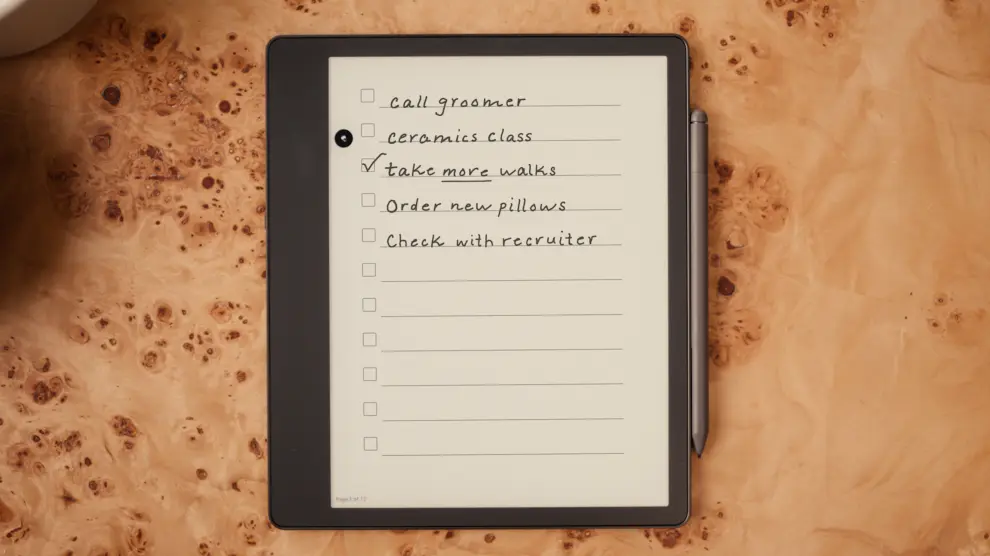 call groomer
ceramics class
take more walks
Order new pillows
Check with recruiter